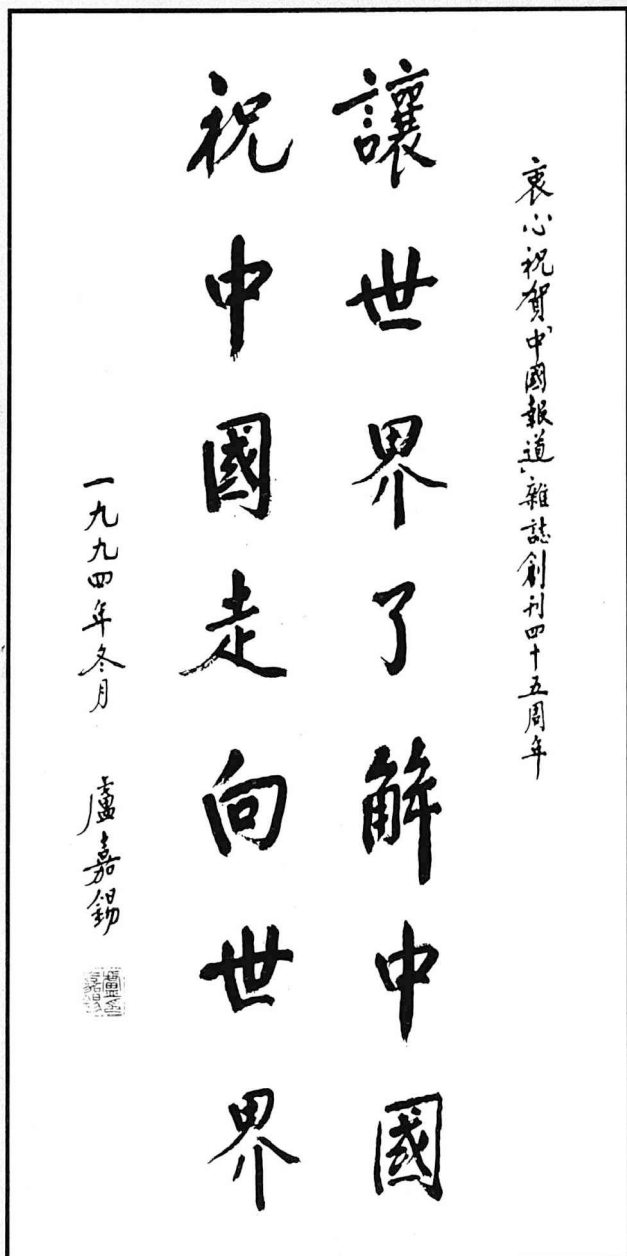 衷心祝賀“中國報道”雜誌創刊四十五周年
讓世界了解中國
祝中國走向世界
一九九四年冬月 盧嘉錫